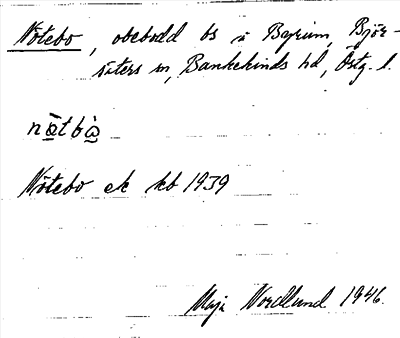 Nötebo, obebodd bs i Byrum, Björ-
säters sn, Bankekinds hd, Östg. l.
nø̀tbò̀
Nötebo ek kb 1939
Maja Nordlund 1946.